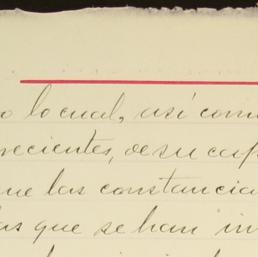 o lo cual, así com
recientes, de su cap
ue las constancia
as que se han in